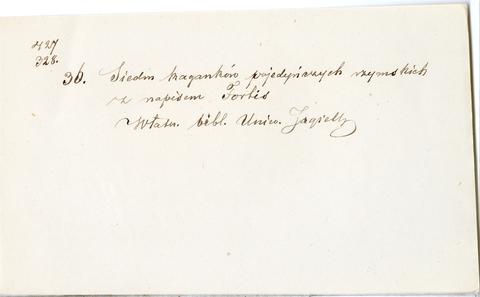 427
328.
36. Siedm kaganków pojedyńczych rzymskich
z napisem Fortis
Własn. bibl. Uniw. Jagiell